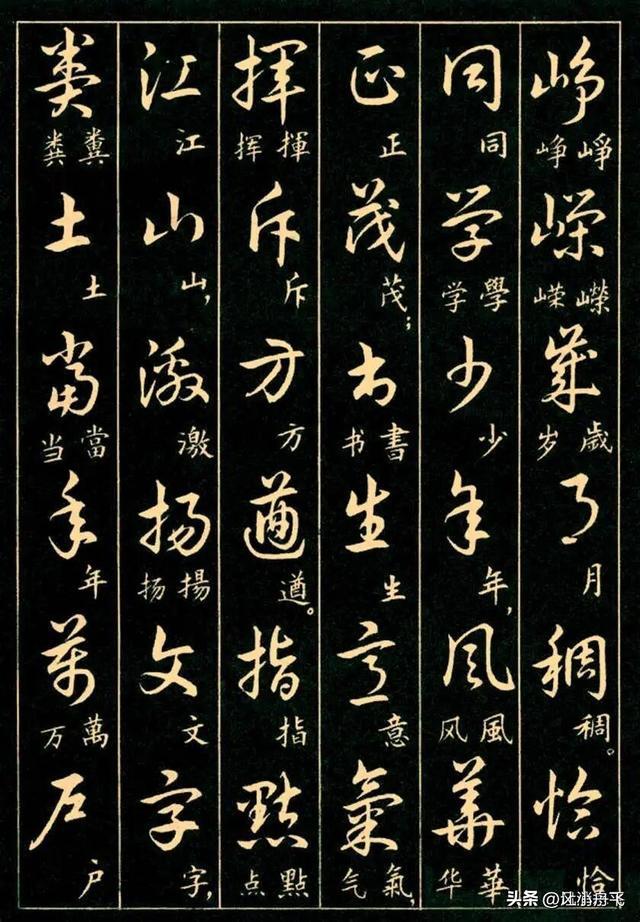 峥 嵘 岁 月 稠 恰
峥崢 嵘嶸 岁歲 月 稠。 恰
同 学 少 年 风 華
同 学學 少 年， 风風 华華
正 茂 书 生 意 氣
正 茂； 书書 生 意 气氣，
揮 斥 方 遒 指 點
挥揮 斥 方 遒。 指 点點
江 山 激 扬 文 字
江 山， 激 扬揚 文 字，
粪 土 当 年 万 户
粪糞 土 当當 年 万萬 户
头条